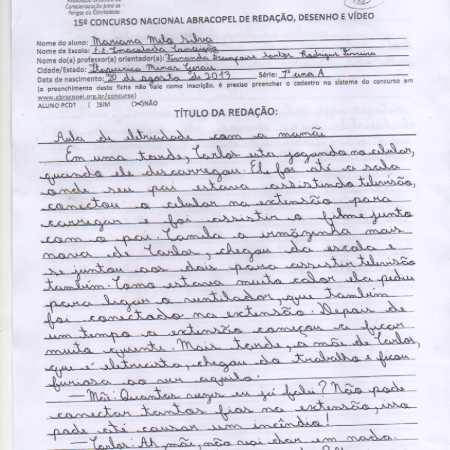 Conscientização para os
Perigos da Eletricidade
15º CONCURSO NACIONAL ABRACOPEL DE REDAÇÃO, DESENHO E VÍDEO
Nome do aluno: Mariana Melo Silva
Nome de Escola: E.E. Imaculada Conceição
Nome do(a) professor(a) orientador(a): Fernanda Santos Rodrigues Ferreira
Cidade/Estado: Minas Gerais
Data de nascimento: 20 de agosto de 2013 Série: 7º ano A
(o preenchimento desta ficha não vale como inscrição, é preciso preencher o cadastro no sistema do concurso em
www.abracopel.org.br/concurso)
ALUNO PCD? ( )SIM (X)NÃO
TÍTULO DA REDAÇÃO:
Aula de eletricidade com a mamãe
Em uma tarde, Carlos esta jogando no celular,
quando ele descarregou. Ele foi até a sala
onde seu pai estava assistindo televisão,
conectou o celular na extensão para
carregar e foi assistir o filme junto
com o pai. Camila a irmãzinha mais
nova de Carlos, chegou da escola e
se juntou aos dois para assistir televisão
também. Como estava muito calor ela pediu
para ligar o ventilador, que também
foi conectado na extensão. Depois de
um tempo a extensão começou a ficar
muito quente. Mais tarde, a mãe de Carlos,
que é eletricista, chegou do trabalho e ficou
furiosa ao ver aquilo.
— Mãe: Quantas vezes eu já falei? Não pode
conectar tantos fios na extensão, isso
pode até causar um incêndio!
— Carlos: Ah, mãe, não vai dar em nada.